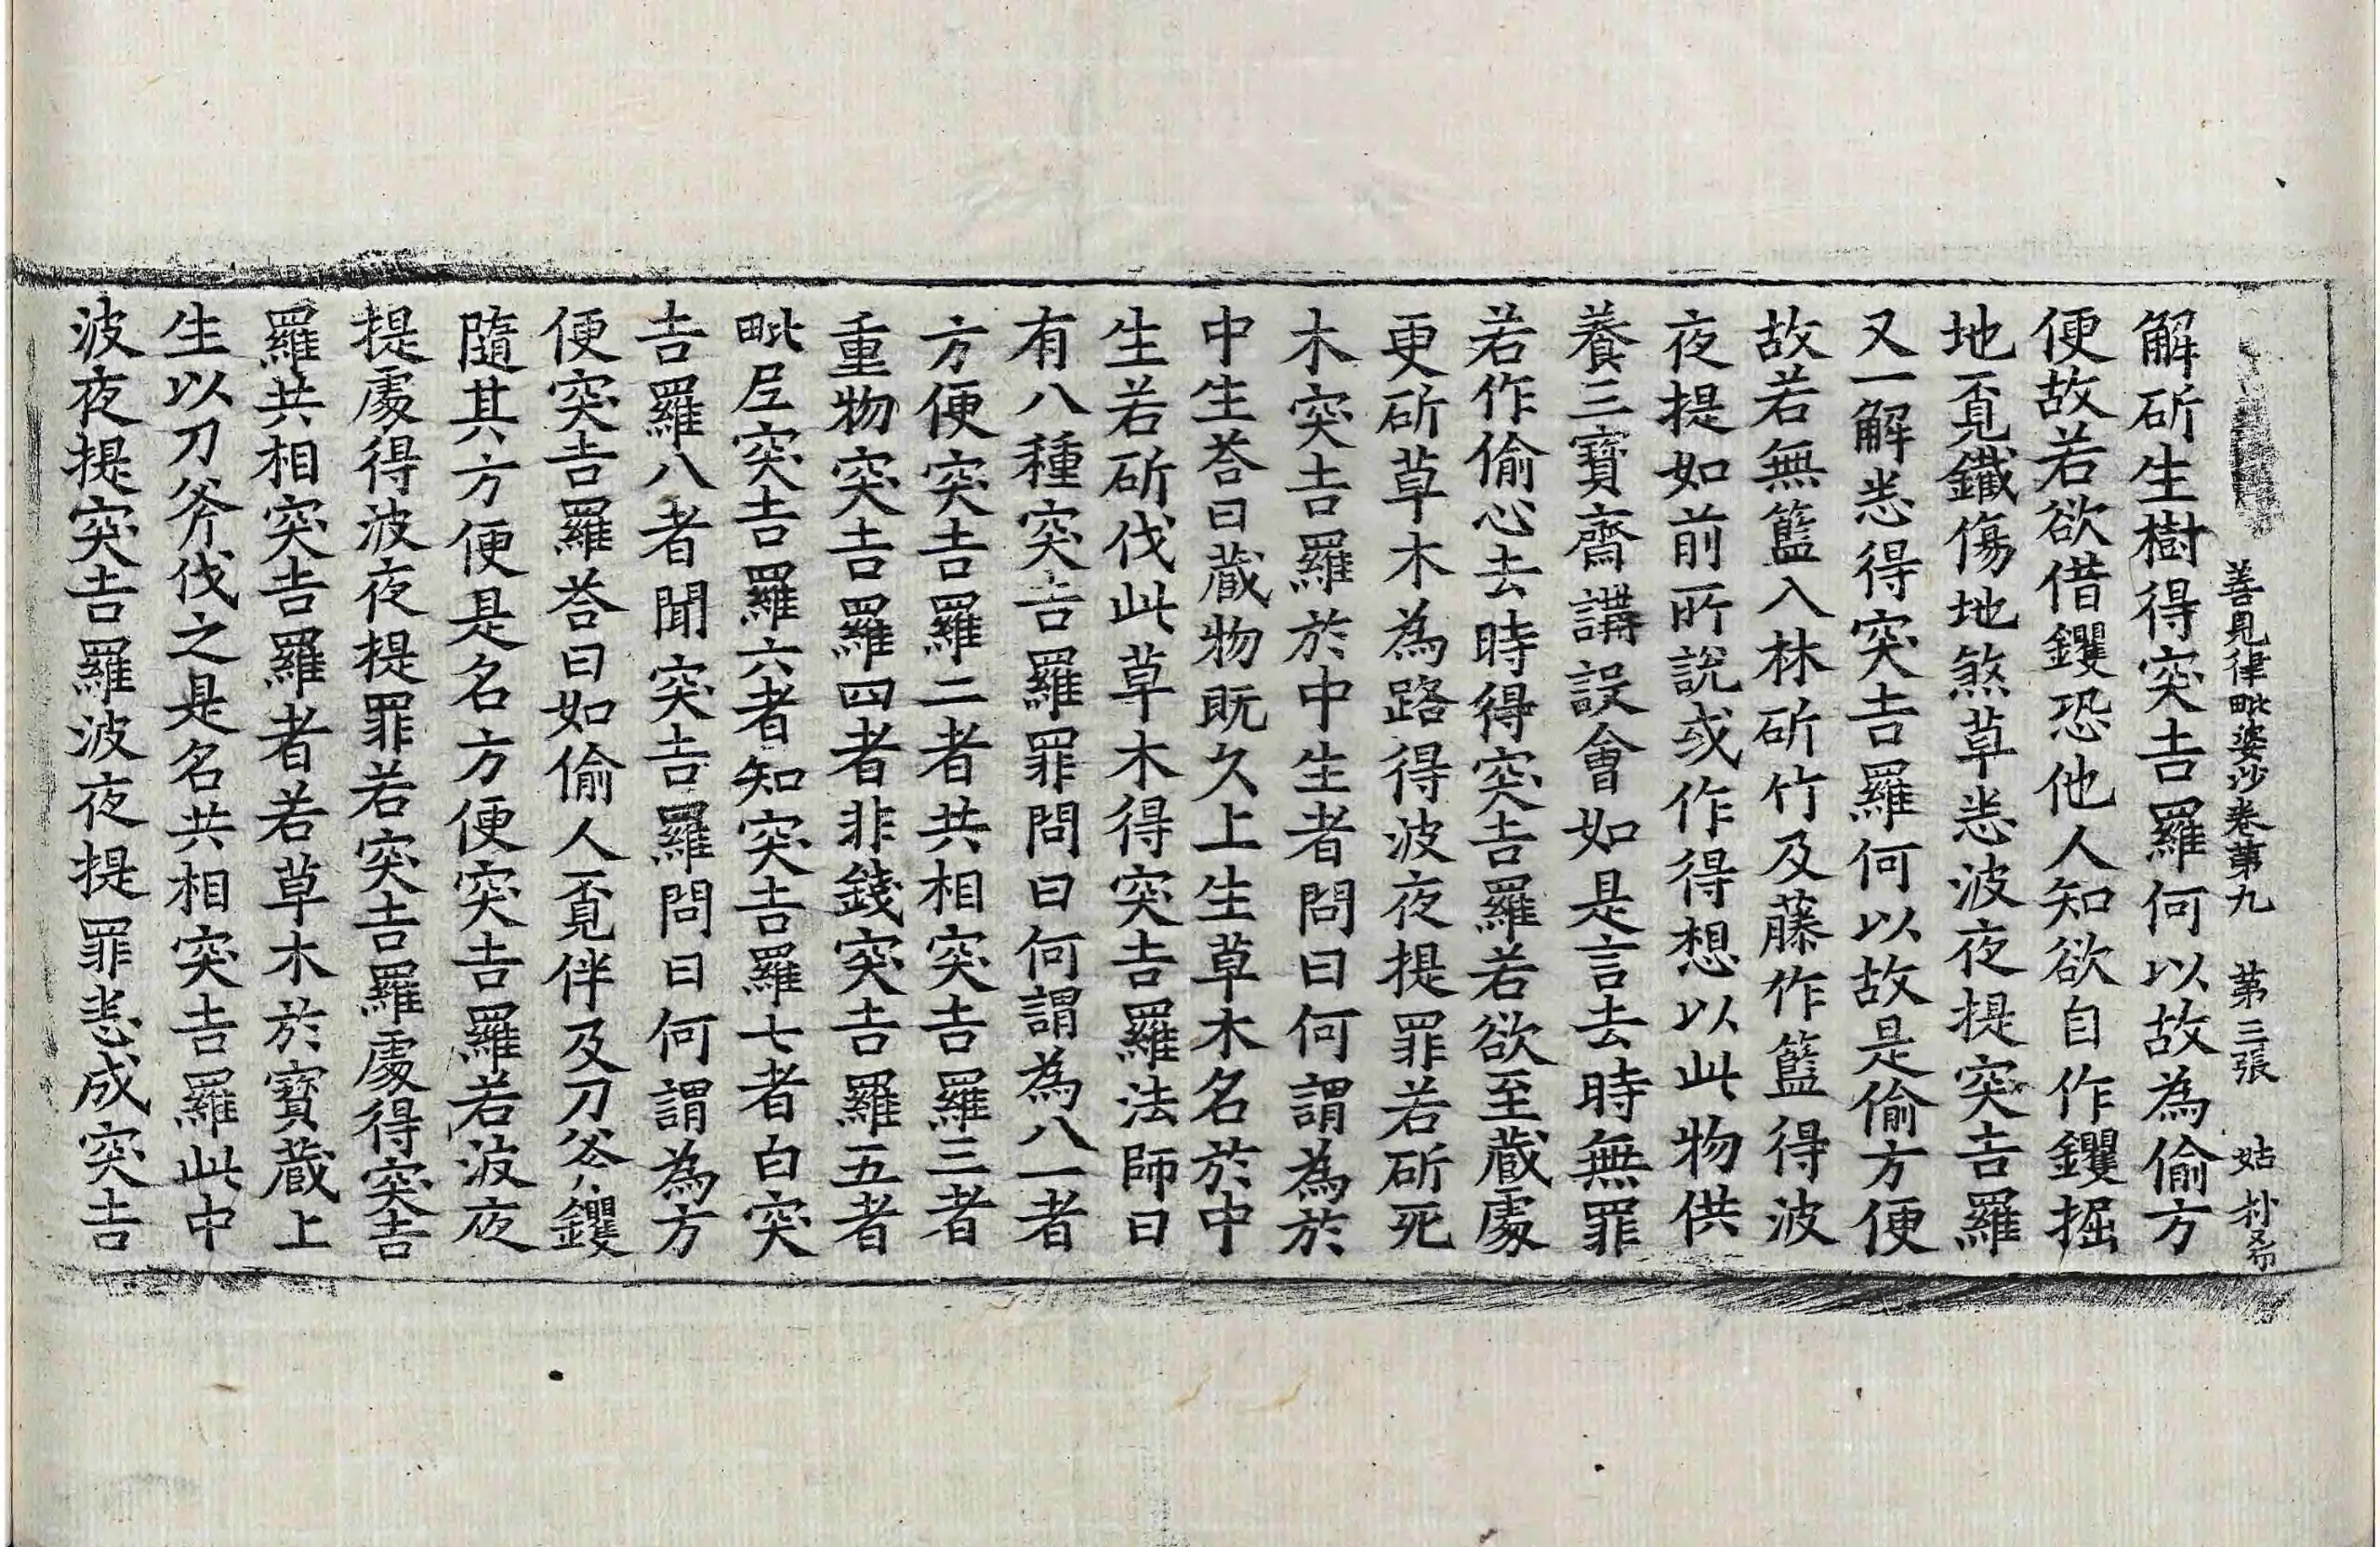 善見律毗婆沙卷第九　第三張　姑
解斫生樹得突吉羅何以故為偷方
便故若欲借钁恐他人知欲自作钁掘
地覔鐵傷地煞草悉波夜提突吉羅
又一解悉得突吉羅何以故是偷方便
故若無籃入林斫竹及藤作籃得波
夜提如前所說或作得想以此物供
養三寶齋講設會如是言去時無罪
若作偷心去時得突吉羅若欲至藏處
更斫草木為路得波夜提罪若斫死
木突吉羅於中生者問曰何謂為於
中生荅曰藏物既久上生草木名於中
生若斫伐此草木得突吉羅法師曰
有八種突吉羅罪問曰何謂為八一者
方便突吉羅二者共相突吉羅三者
重物突吉羅四者非錢突吉羅五者
毗尼突吉羅六者知突吉羅七者白突
吉羅八者聞突吉羅問曰何謂為方
便突吉羅荅曰如偷人覔伴及刀斧钁
隨其方便是名方便突吉羅若波夜
提處得波夜提罪若突吉羅處得突吉
羅共相突吉羅者若草木於寶藏上
生以刀斧伐之是名共相突吉羅此中
波夜提突吉羅波夜提罪悉成突吉